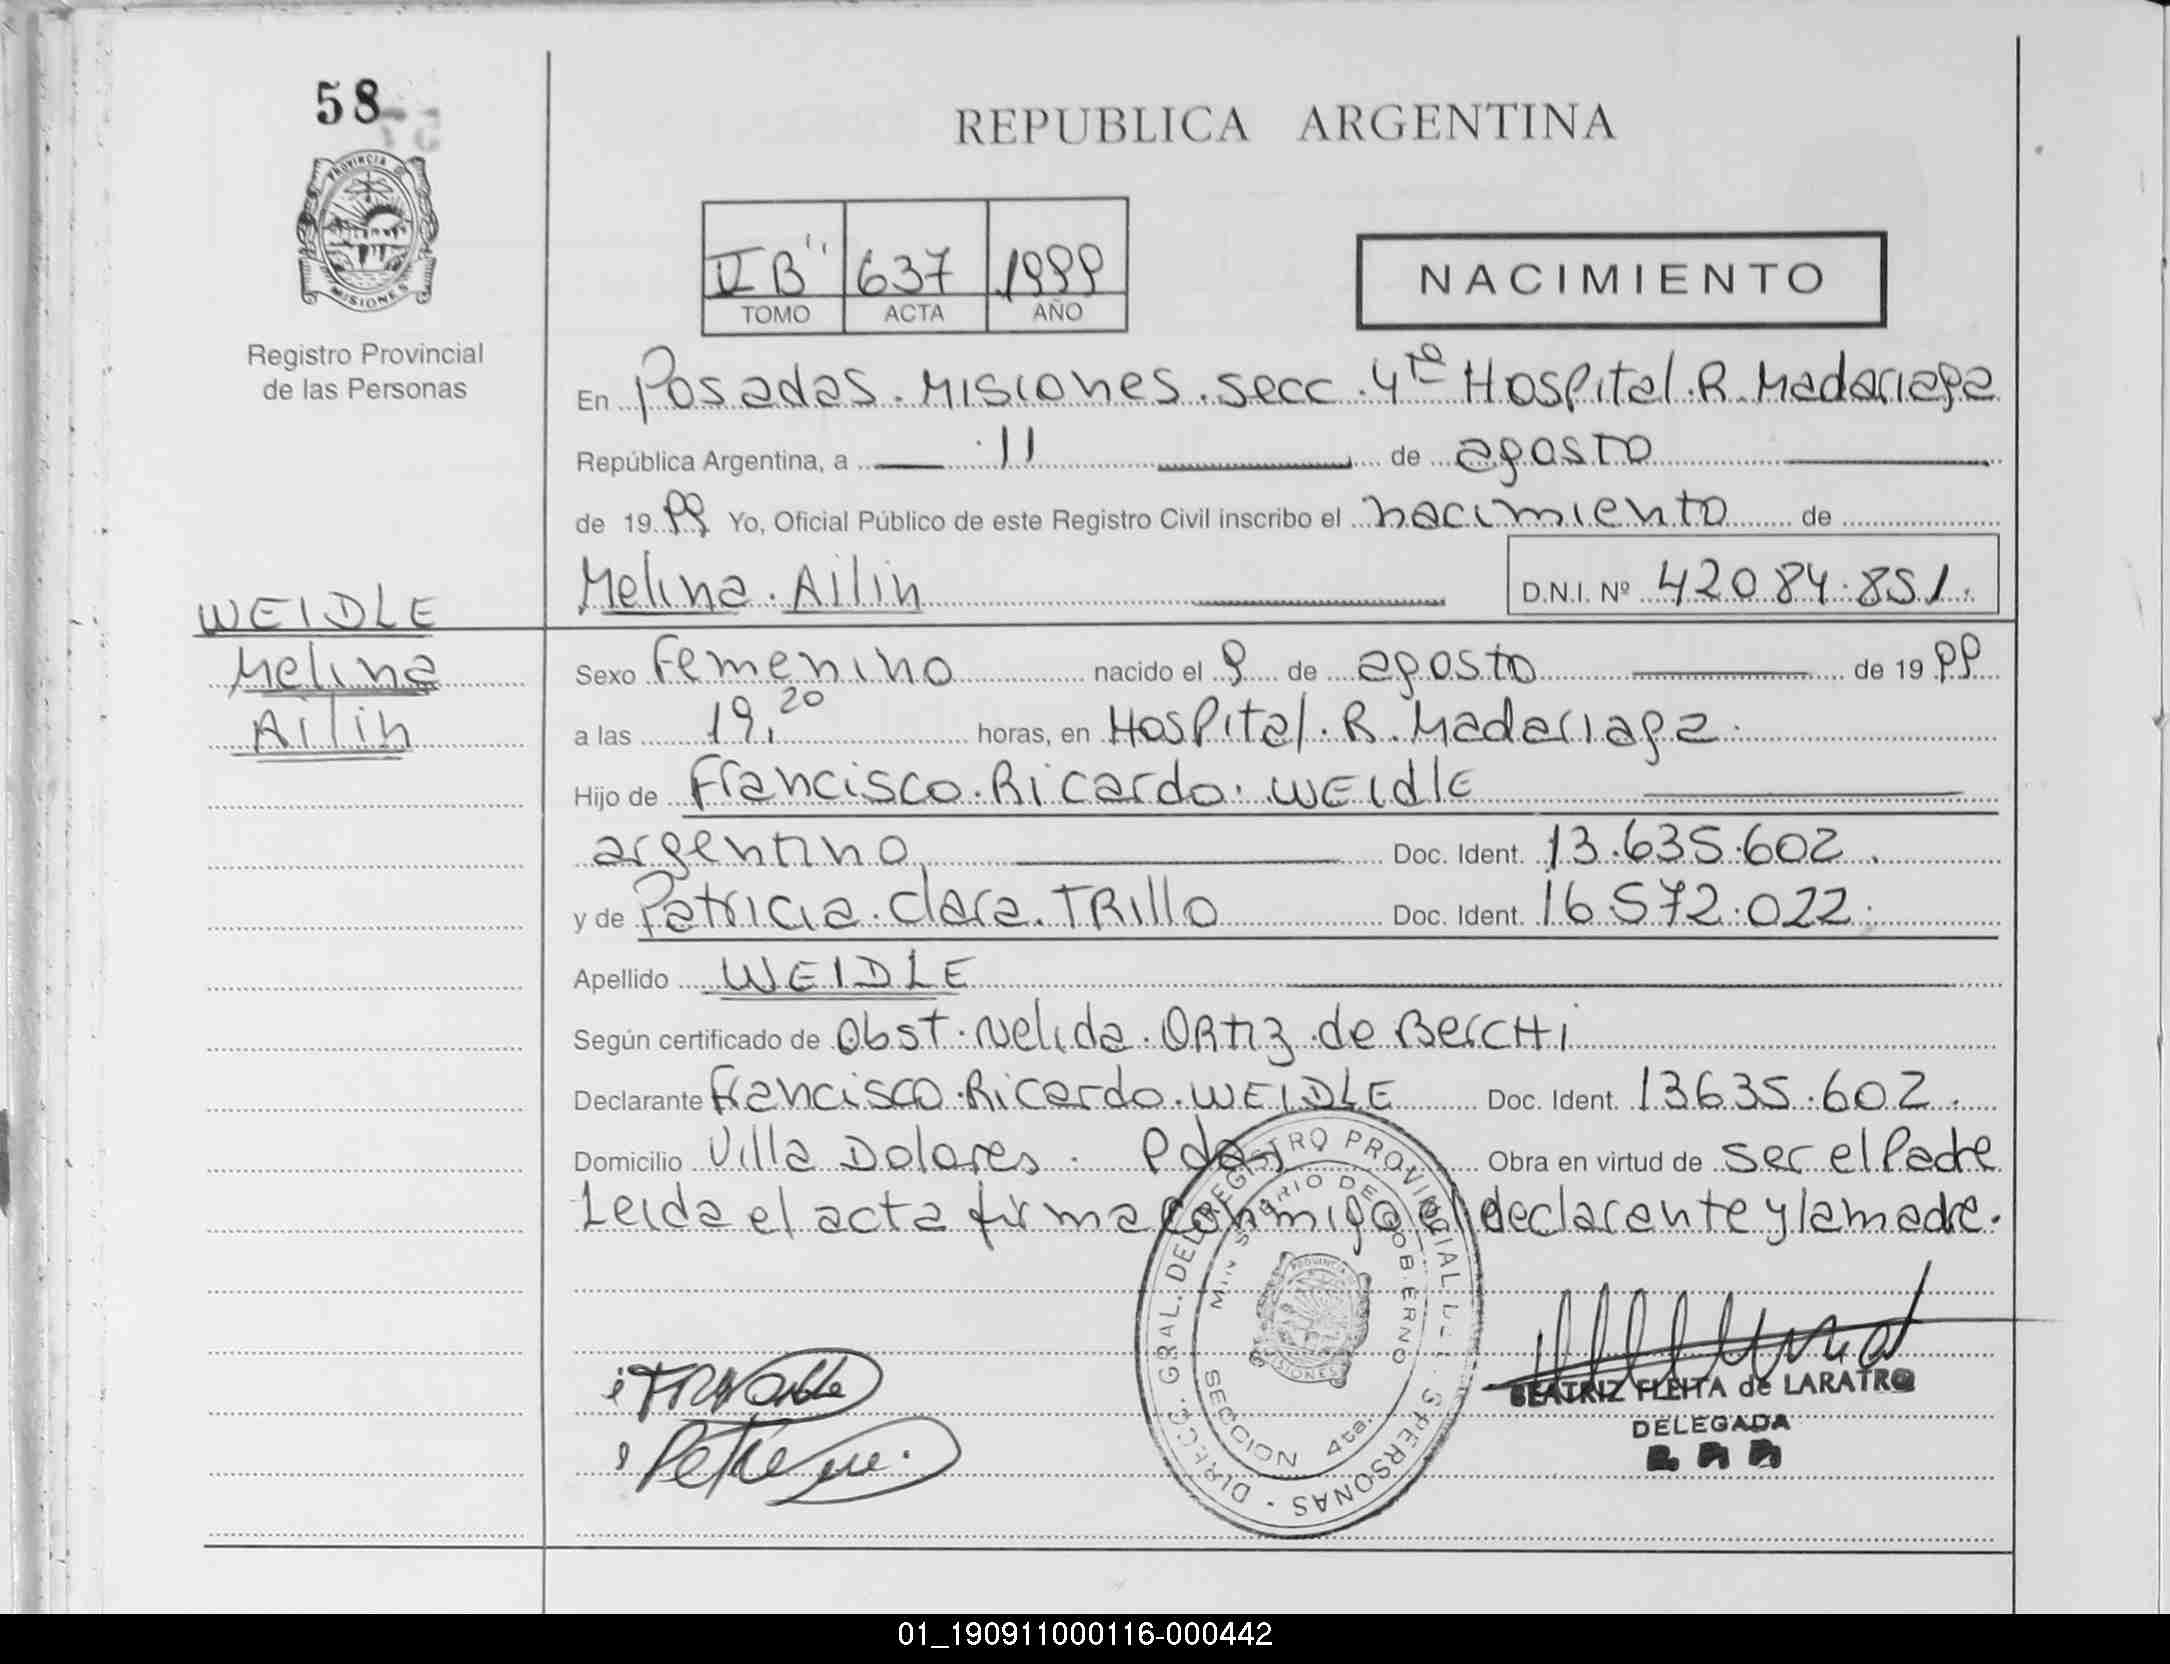 58
REPUBLICA ARGENTINA
PROVINCIA DE
MISIONES
Registro Provincial
de las Personas
II B" 637 1999
TOMO ACTA AÑO
NACIMIENTO
En Posadas. Misiones. secc. 4ta Hospital. R. Madariaga
República Argentina, a 11 de agosto
de 1999 Yo, Oficial Público de este Registro Civil inscribo el nacimiento de
Melina. Ailin D.N.I. Nº 42084.851.
WEIDLE
Melina
Ailin
Sexo Femenino nacido el 9 de agosto de 1999
a las 19,20 horas, en Hospital. R. Madariaga.
Hijo de Francisco. Ricardo. WEIdlE
argentino Doc. Ident. 13.635.602.
y de Patricia. Clara. TRillo Doc. Ident. 16.572.022.
Apellido WEIDLE
Según certificado de Obst. Nelida. ORtiz de BercHi
Declarante Francisco. Ricardo. WEIDLE Doc. Ident. 13635.602.
Domicilio Villa Dolores. Pdas Obra en virtud de ser el Padre
Leida el acta firma conmigo el declarante y la madre.
DIRECC. GRAL. DEL REGISTRO PROVINCIAL DE LAS PERSONAS
MINISTERIO DE GOBIERNO
SECCION 4ta.
PROVINCIA
MISIONES
BEATRIZ FLEITA de LARATRO
DELEGADA
01_190911000116-000442